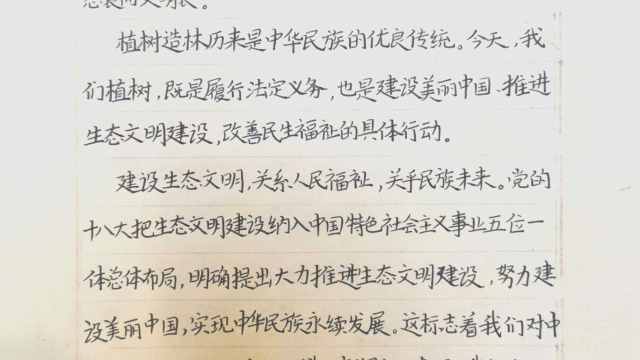 植树造林历来是中华民族的优良传统。今天，我
们植树，既是履行法定义务，也是建设美丽中国、推进
生态文明建设，改善民生福祉的具体行动。
建设生态文明，关系人民福祉，关乎民族未来。党的
十八大把生态文明建设纳入中国特色社会主义事业五位一
体总体布局，明确提出大力推进生态文明建设，努力建
设美丽中国，实现中华民族永续发展。这标志着我们对中